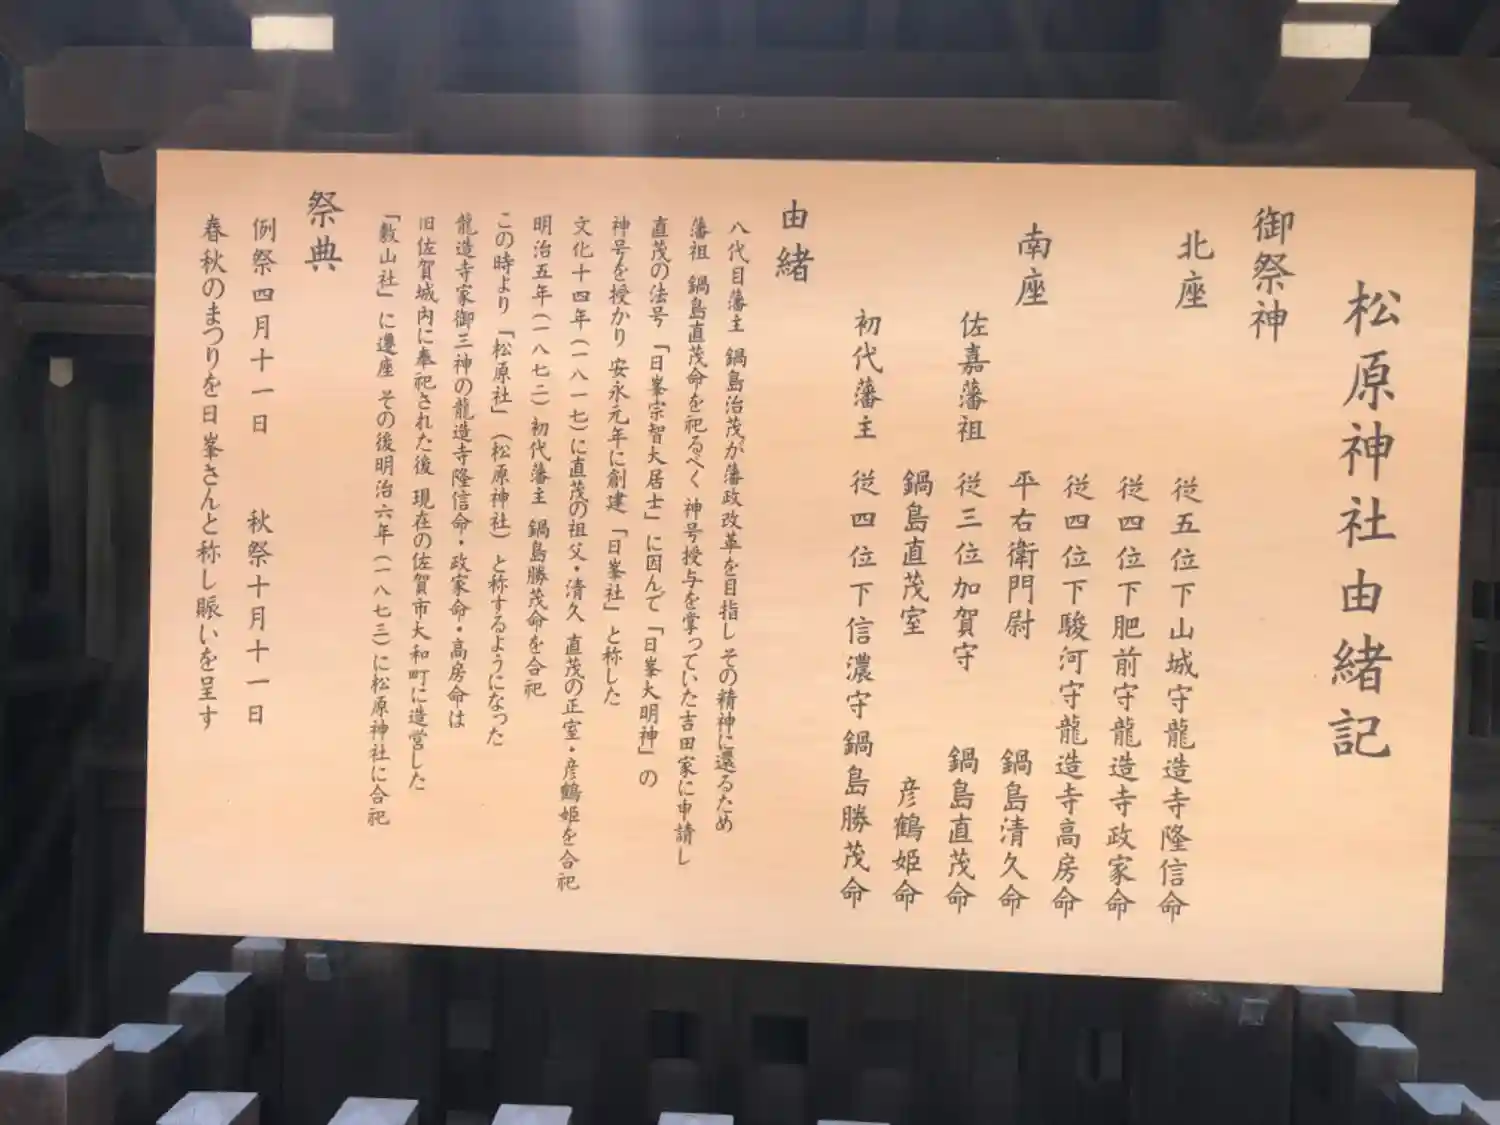 松原神社由緒記
御祭神
北座
従五位下山城守龍造寺隆信命
従四位下肥前守龍造寺政家命
従四位下駿河守龍造寺高房命
南座
平右衛門尉 鍋島清久命
佐嘉藩祖 従三位加賀守 鍋島直茂命
鍋島直茂室 彦鶴姫命
初代藩主 従四位下信濃守鍋島勝茂命
由緒
八代目藩主 鍋島治茂が藩政改革を目指しその精神に還るため
藩祖 鍋島直茂命を祀るべく 神号授与を掌っていた吉田家に申請し
直茂の法号「日峯宗智大居士」に因んで「日峯大明神」の
神号を授かり 安永元年に創建「日峯社」と称した
文化十四年(一八一七)に直茂の祖父・清久 直茂の正室・彦鶴姫を合祀
明治五年(一八七二)初代藩主 鍋島勝茂命を合祀
この時より「松原社」(松原神社)と称するようになった
龍造寺家御三神の龍造寺隆信命・政家命・高房命は
旧佐賀城内に奉祀された後 現在の佐賀市大和町に造営した
「数山社」に遷座 その後明治六年(一八七三)に松原神社に合祀
祭典
例祭四月十一日 秋祭十月十一日
春秋のまつりを日峯さんと称し賑いを呈す